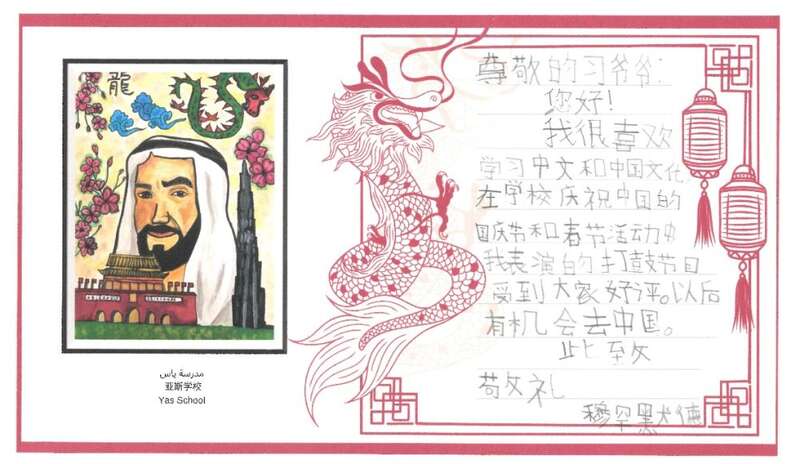 龍
مدرسة ياس
亚斯学校
Yas School
尊敬的习爷爷:
您好!
我很喜欢
学习中文和中国文化,
在学校庆祝中国的
国庆节和春节活动中
我表演的打鼓节目
受到大家好评。以后
有机会去中国。
此致
敬礼
穆罕默德